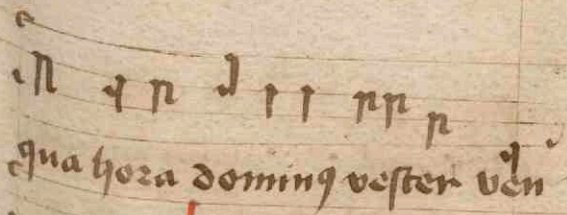 qua hora dominꝰ vester ven